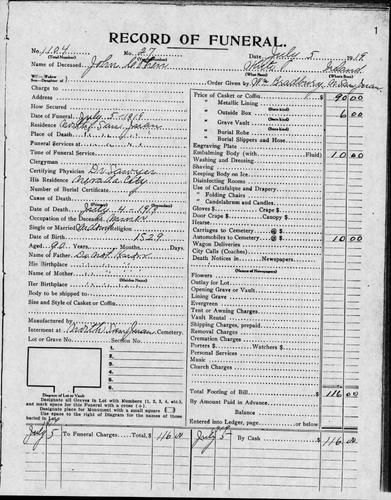 1
RECORD OF FUNERAL.
No. 1104 No. 27 Date, July 5 1919
(Total Number) (Yearly Number)
Name of Deceased, John White Ireland
(What Race) (Where Born)
Order Given by Wm Bradbury
Charge to
Address
How Secured
Date of Funeral July 5. 1919
Residence North San Juan
Place of Death
Funeral Services at
Time of Funeral Service
Clergyman
Certifying Physician
His Residence Nevada City
Number of Burial Certificate
Cause of Death
Date of Death July 4. 1919
Occupation of Deceased
Single or Married Religion
Date of Birth 1829
Aged 90 Years Months Days
Name of Father Do Not Know
His Birthplace
Name of Mother
Her Birthplace
Body to be shipped to
Size and Style of Casket or Coffin
Manufactured by
Interment at North San Juan Cemetery.
Lot or Grave No. Section No.
1.
2.
3.
4.
5.
6.
Diagram of Lot or Vault
Designate all Graves in Lot with Numbers (1, 2, 3, 4, etc.)
and mark space for this Funeral with a cross (+).
Designate place for Monument with a small square
Use space to the right of Diagram for the names of those
buried in Lot.
July 5 To Funeral Charges Total, $ 116 00
Price of Casket or Coffin $ 90 00
" Metallic Lining
" Outside Box 6 00
" Grave Vault
" Burial Robe
" Burial Slippers and Hose
Engraving Plate
Embalming Body (with Fluid) 10 00
Washing and Dressing
Shaving
Keeping Body on Ice
Disinfecting Rooms
Use of Catafalque and Drapery
" Folding Chairs
" Candelabrum and Candles
Gloves $ Crape $
Door Crape $ Canopy $
Hearse
Carriages to Cemetery @ $
Automobiles to Cemetery @ $ 10 00
Wagon Deliveries
City Calls (Coaches)
Death Notices in Newspapers
Flowers
Outlay for Lot
Opening Grave or Vault
Lining Grave
Evergreen
Tent or Awning Charges
Vault Rental
Shipping Charges, prepaid
Removal Charges
Cremation Charges
Porters $ Watchers $
Personal Services
Music
Church Charges
Total Footing of Bill $ 116 00
By Amount Paid in Advance
Balance
Entered into Ledger, page or below
July 5 By Cash $ 116 00